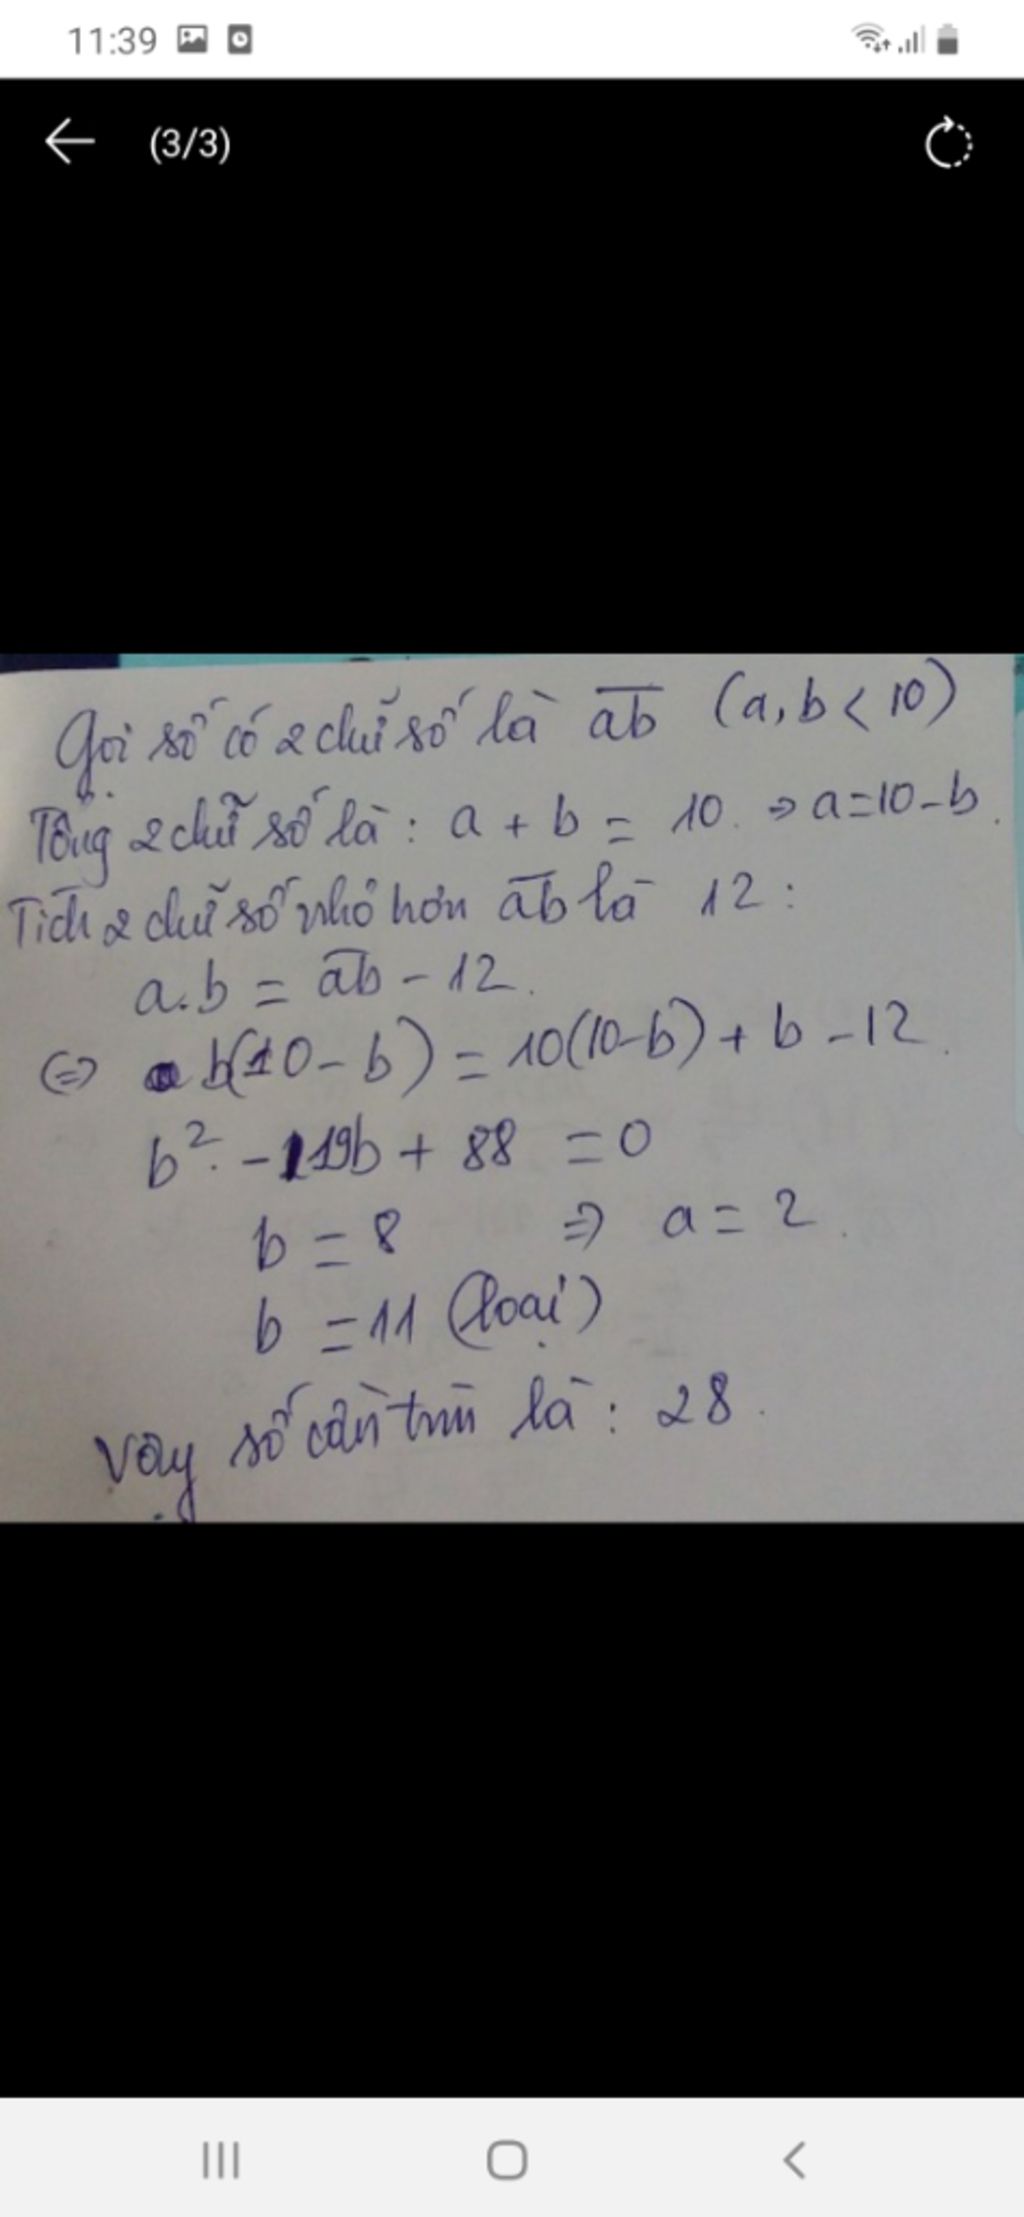 11:39
(3/3)
Gọi số có 2 chữ số là ab (a, b < 10)
Tổng 2 chữ số là : a + b = 10. ⇒ a=10-b.
Tích 2 chữ số nhỏ hơn ab là 12 :
a.b = ab - 12.
⇔ b(10 - b) = 10(10-b) + b - 12.
b² - 19b + 88 = 0
b = 8 ⇒ a = 2.
b = 11 (loại)
Vậy số cần tìm là : 28.